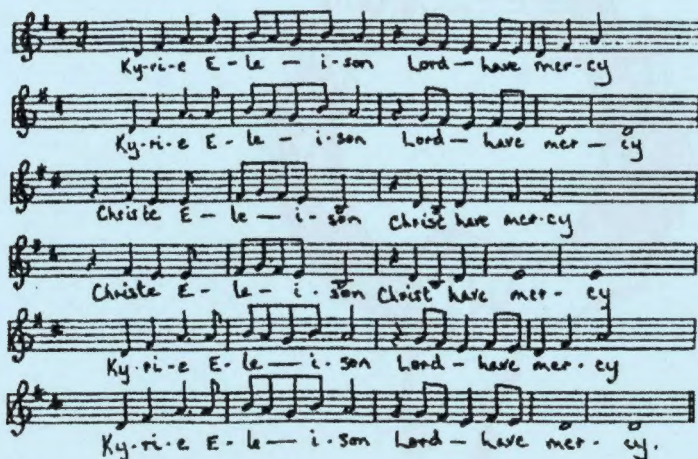 Ky-ri-e E-le—i-son Lord—have mer-cy
Ky-ri-e E-le—i-son Lord—have mer—cy
Christe E-le—i-son Christ have mer-cy
Christe E-le-i-son Christ have mer-cy
Ky-ri-e E-le—i-son Lord—have mer-cy
Ky-ri-e E-le—i-son Lord—have mer-cy.